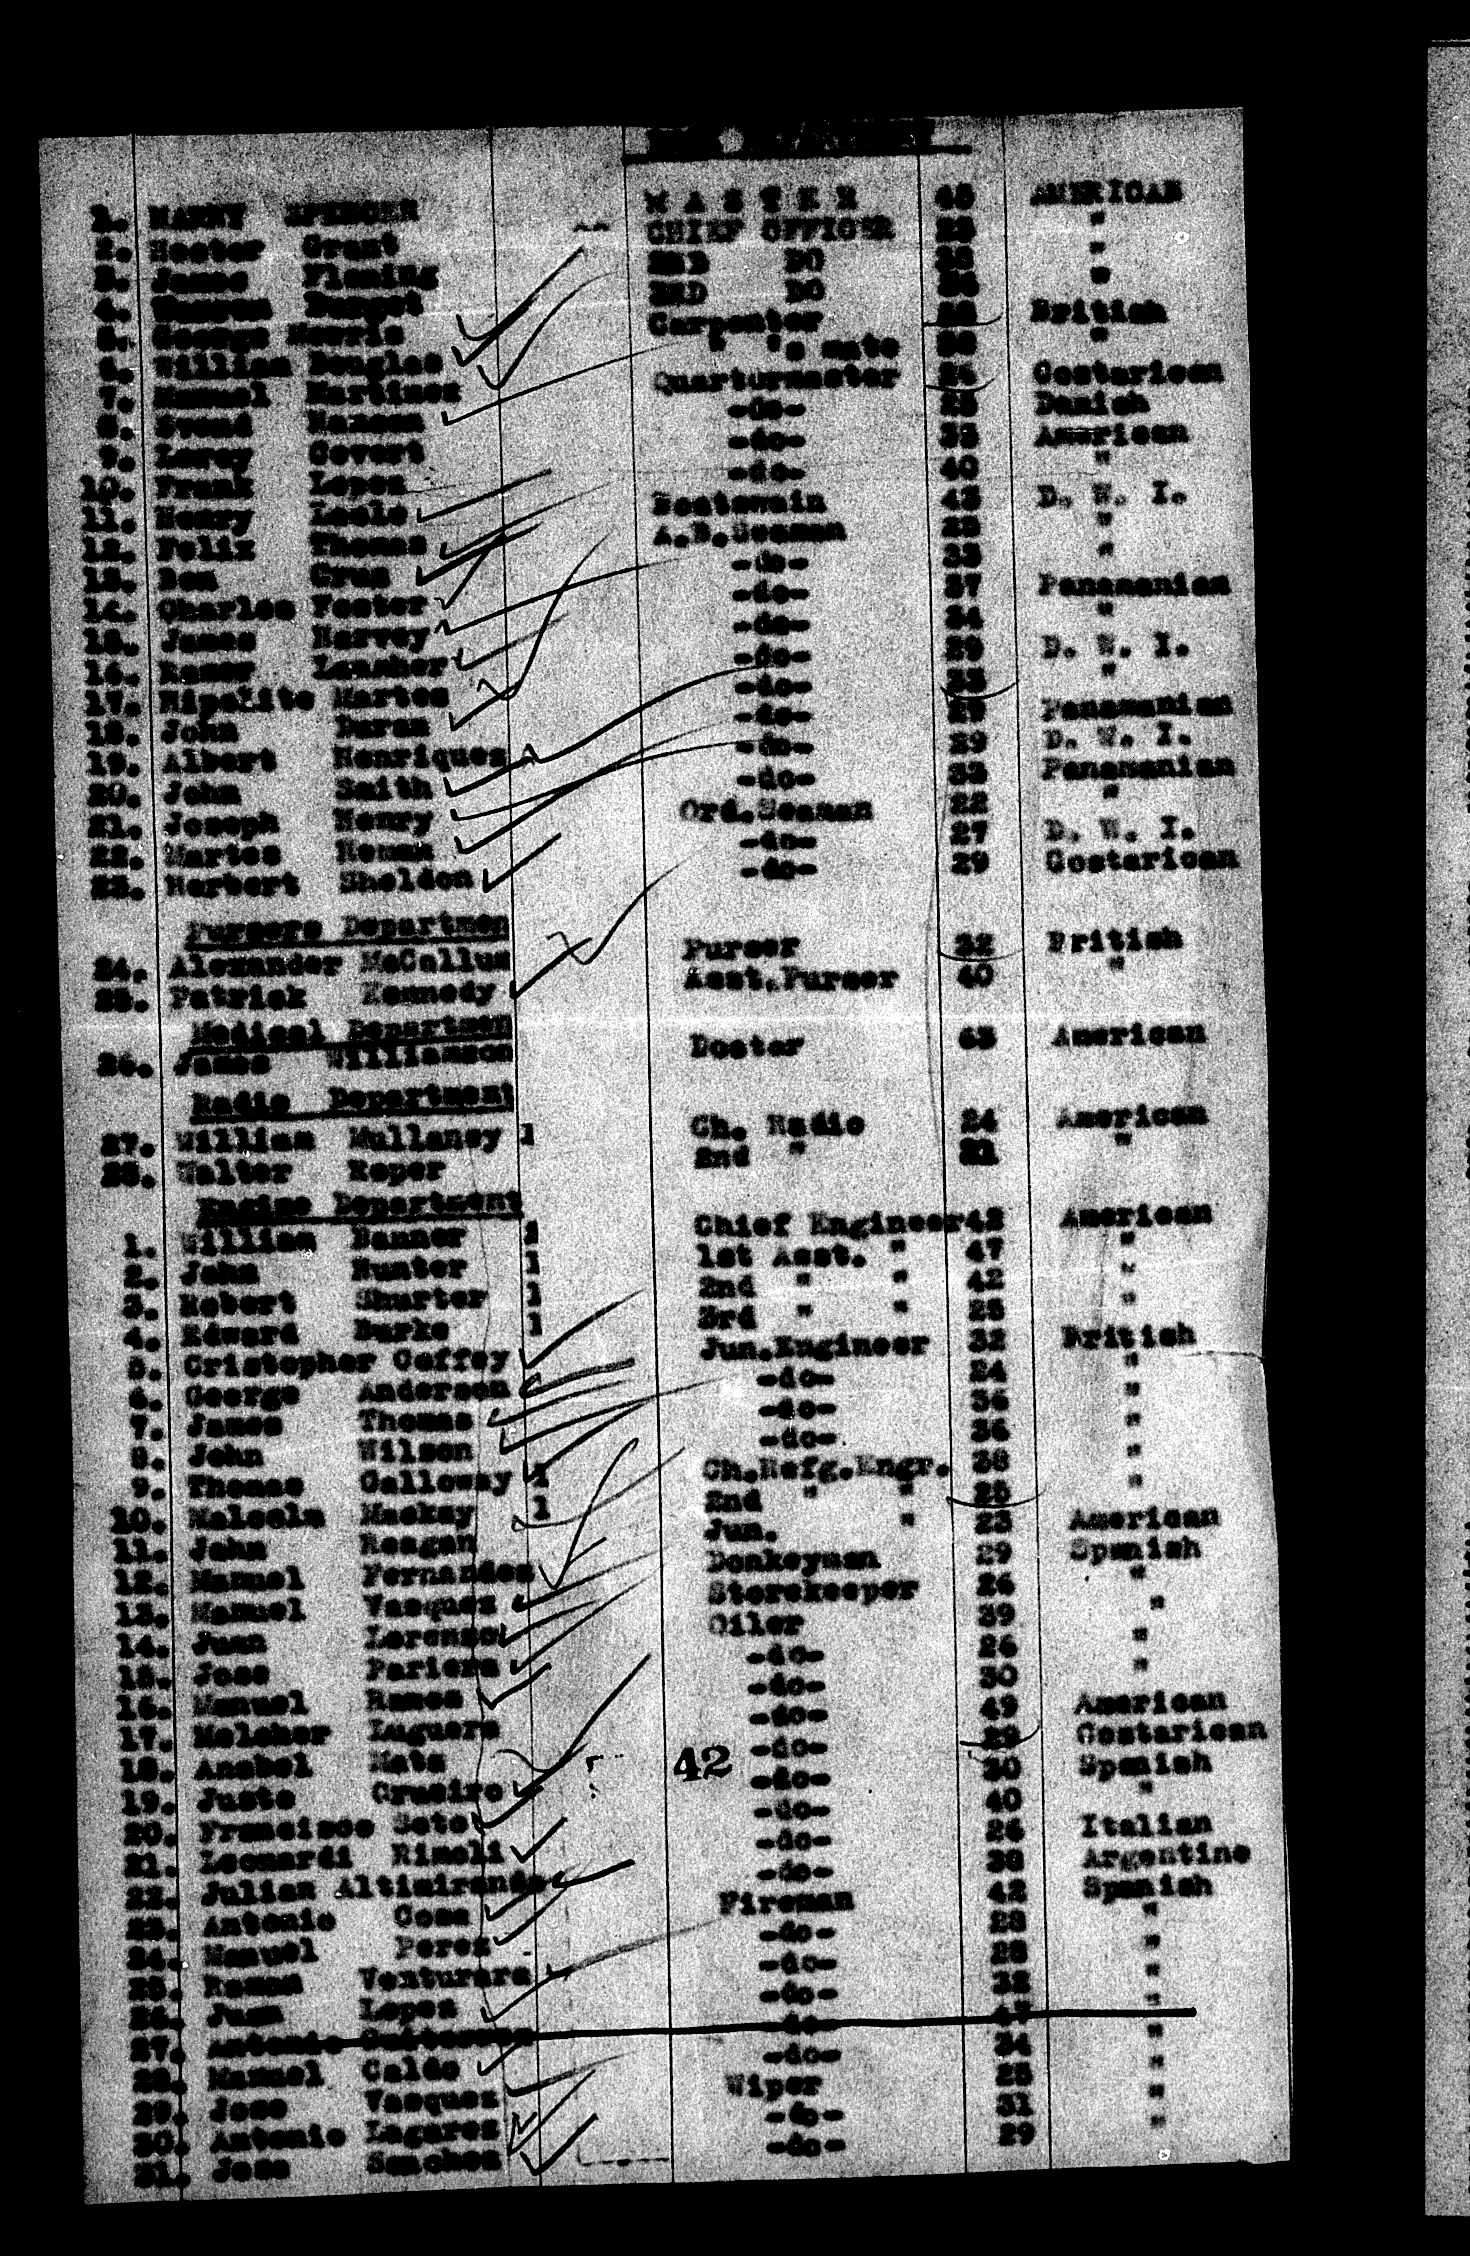 1. HARRY SPENCER M A S T E R 45 AMERICAN
2. Hester Grant CHIEF OFFICER "
3. James Fleming 2ND DO "
4. 3RD DO "
5. George Morris Carpenter British
6. William Douglas " 's mate "
7. Manuel Martinez Quartermaster Costarican
8. Svend Hansen -do- Danish
9. Leroy Covert -do- American
10. Frank Lopez -do- 40 "
11. Henry Boatswain 43 D. W. I.
12. Felix Thomas A.B.Seaman "
13. Ben -do- 23 "
14. Charles Foster -do- 37 Panamanian
15. James Harvey -do- "
16. -do- 29 D. W. I.
17. Martes -do- "
18. John Duran -do- 29 Panamanian
19. Albert Henriques -do- 29 D. W. I.
20. John Smith -do- 33 Panamanian
21. Joseph Henry Ord.Seaman 22 "
22. Martes -do- 27 D. W. I.
23. Herbert Sheldon -do- 29 Costarican
Pursers Departmen
24. Alexander McCallum Purser 32 British
25. Patrick Kennedy Asst.Purser 40 "
Medical Departmen
26. James Williamson Doctor 65 American
Radio Department
27. William Mullaney 1 Ch. Radio 24 American
28. Walter Roper 2nd " 21 "
Engine Department
1. William Banner 1 Chief Engineer 42 American
2. John Hunter 1 1st Asst. " 47 "
3. Robert Shurter 1 2nd " " 42 "
4. Edward Burke 1 3rd " " 25 "
5. Cristopher Caffey Jun.Engineer 32 British
6. George Anderson -do- 24 "
7. James Thomas -do- 36 "
8. John Wilson -do- 36 "
9. Thomas Galloway 1 Ch.Refg.Engr. 38 "
10. Malcolm Mackay 1 2nd " " 25 "
11. John Reagan Jun. " 23 American
12. Manuel Fernandez Donkeyman 29 Spanish
13. Manuel Vasquez Storekeeper 26 "
14. Juan Lorenzo Oiler 39 "
15. Jose -do- 26 "
16. Manuel Ramos -do- 30 "
17. Melcher Luguera -do- 49 American
18. Anabel Mata 42 -do- 29 Costarican
19. Juste -do- 30 Spanish
20. Francisco Soto -do- 40 "
21. Leonardi Rimoli -do- 26 Italian
22. Julian Altimiranda -do- 38 Argentine
23. Antonio Coma Fireman 42 Spanish
24. Manuel Perez -do- 28 "
25. Ramon Venturara -do- 28 "
26. Juan Lopez -do- 32 "
27. Antonio -do- "
28. Manuel Caldo -do- 34 "
29. Jose Vasquez Wiper 25 "
30. Antonio Lagares -do- 31 "
31. Jose Sanchez -do- 29 "